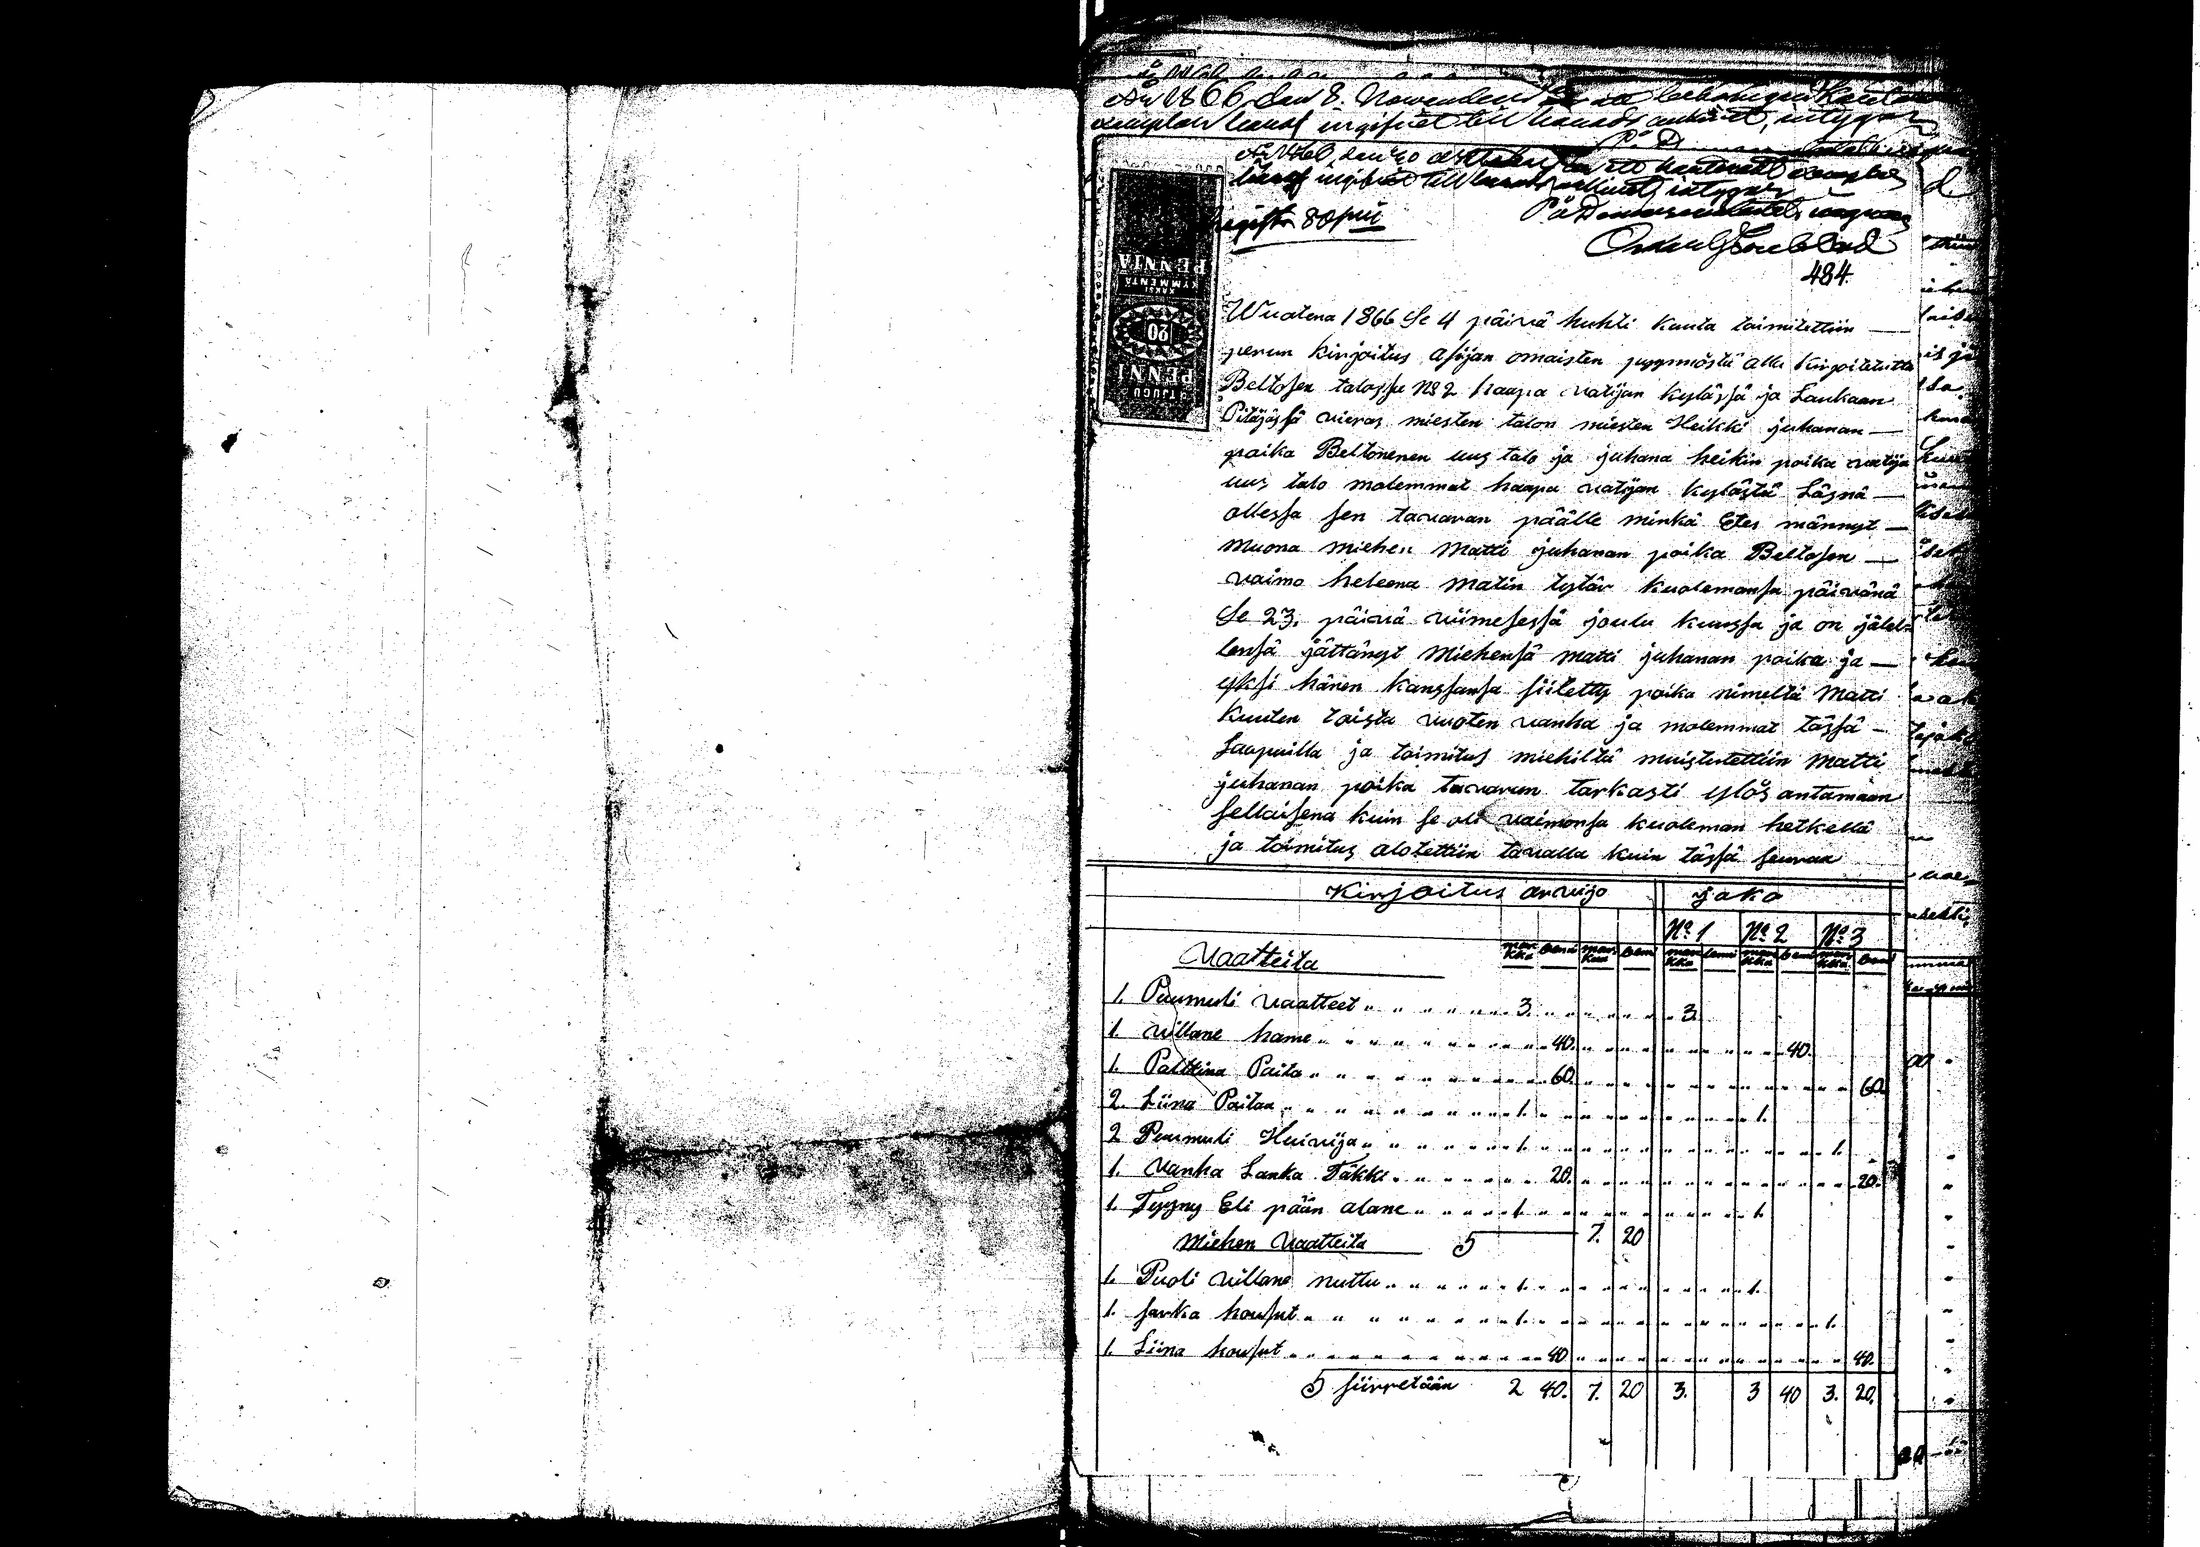 År 1866 den 8. November
exemplar häraf ingifvet till härads intygar
År 1866, den 20 October
häraf ingifvet till härads arkivet, intygar
På Domareembetets vägnar
80 pni
484.
KAKSI
KYMMENTÄ
PENNIÄ
20
TJUGU
PENNI
Wuotena 1866 Se 4 päivä huhti kuuta toimitettiin —
perun kirjoitus asijan omaisten pyynnöstä alla kirjoitetutta
Beltosen talossa No 2 haapa vatijan kylässä ja Laukaan
Pitäjässä vieras miesten talon miesten Heikki juhanan —
poika Beltonenen uus talo ja juhana heikin poika vatija
uus talo molemmat haapa vatijan kylästä Läsnä —
ollessa sen tavaran päälle minkä Etes männyt —
muona miehen Matti juhanan poika Beltosen —
vaimo heleena matin tytär kuolemansa päivänä
Se 23. päivä viimesessä joulu kuussa ja on jälel=
lensä jättänyt Miehensä matti juhanan poika ja —
yksi hänen kanssansa siitetty poika nimeltä Matti
kuuten toista vuoten vanha ja molemmat tässä —
saapuilla ja toimitus miehiltä muistutettiin Matti
juhanan poika tavaran tarkasti ylös antamaan
sellaisena kuin se oli vaimonsa kuoleman hetkellä
ja toimitus alotettiin tavalla kuin tässä seuraa
Kirjoitus arvijo jako
No 1 No 2 No 3
Vaatteita markka penni markka penni markka penni markka penni markka penni
1. Puumuli vaatteet 3. 3.
1. villane hame 40. 40.
1. Palttina Paita 60. 60.
2. Liina Paitaa 1. 1.
2 Puumuli Huivija 1. 1.
1. vanha Lanka Täkki 20. 20.
1. Tyyny Eli pään alane 1. 1.
Miehen Vaatteita S 7. 20
1. Puoli villane nuttu 1. 1.
1. sarka housut 1. 1.
1. Liina housut 40 40.
S siirretään 2 40. 7. 20 3. 3 40 3. 20.